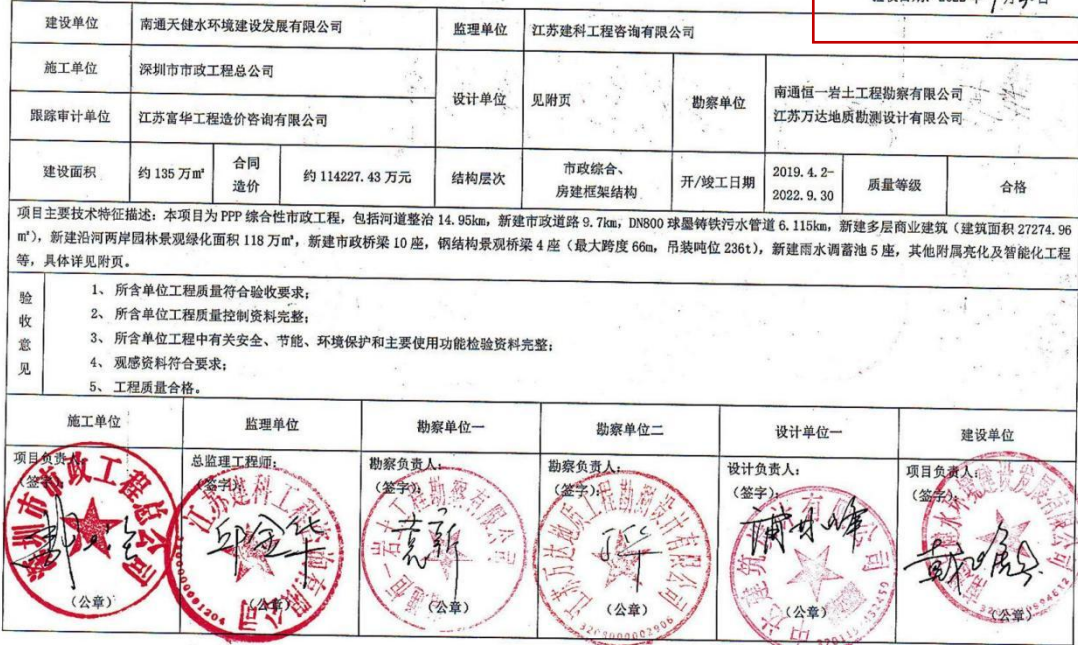 2022年9月30日
建设单位 南通天健水环境建设发展有限公司 监理单位 江苏建科工程咨询有限公司
施工单位 深圳市市政工程总公司 设计单位 见附页 勘察单位 南通恒一岩土工程勘察有限公司
江苏万达地质勘测设计有限公司
跟踪审计单位 江苏富华工程造价咨询有限公司
建设面积 约135万㎡ 合同造价 约114227.43万元 结构层次 市政综合、房建框架结构 开/竣工日期 2019.4.2-2022.9.30 质量等级 合格
项目主要技术特征描述：本项目为PPP综合性市政工程，包括河道整治14.95km，新建市政道路9.7km，DN800球墨铸铁污水管道6.115km，新建多层商业建筑（建筑面积27274.96
㎡），新建沿河两岸园林景观绿化面积118万㎡，新建市政桥梁10座，钢结构景观桥梁4座（最大跨度66m，吊装吨位236t），新建雨水调蓄池5座，其他附属亮化及智能化工程
等，具体详见附页。
验收意见
1、 所含单位工程质量符合验收要求；
2、 所含单位工程质量控制资料完整；
3、 所含单位工程中有关安全、节能、环境保护和主要使用功能检验资料完整；
4、 观感资料符合要求；
5、 工程质量合格。
施工单位 监理单位 勘察单位一 勘察单位二 设计单位一 建设单位
项目负责人： 总监理工程师： 勘察负责人： 勘察负责人： 设计负责人： 项目负责人：
（签字） （签字） （签字） （签字） （签字） （签字）
深圳市市政工程总公司
邱金华
（公章） （公章） （公章） （公章） （公章） （公章）